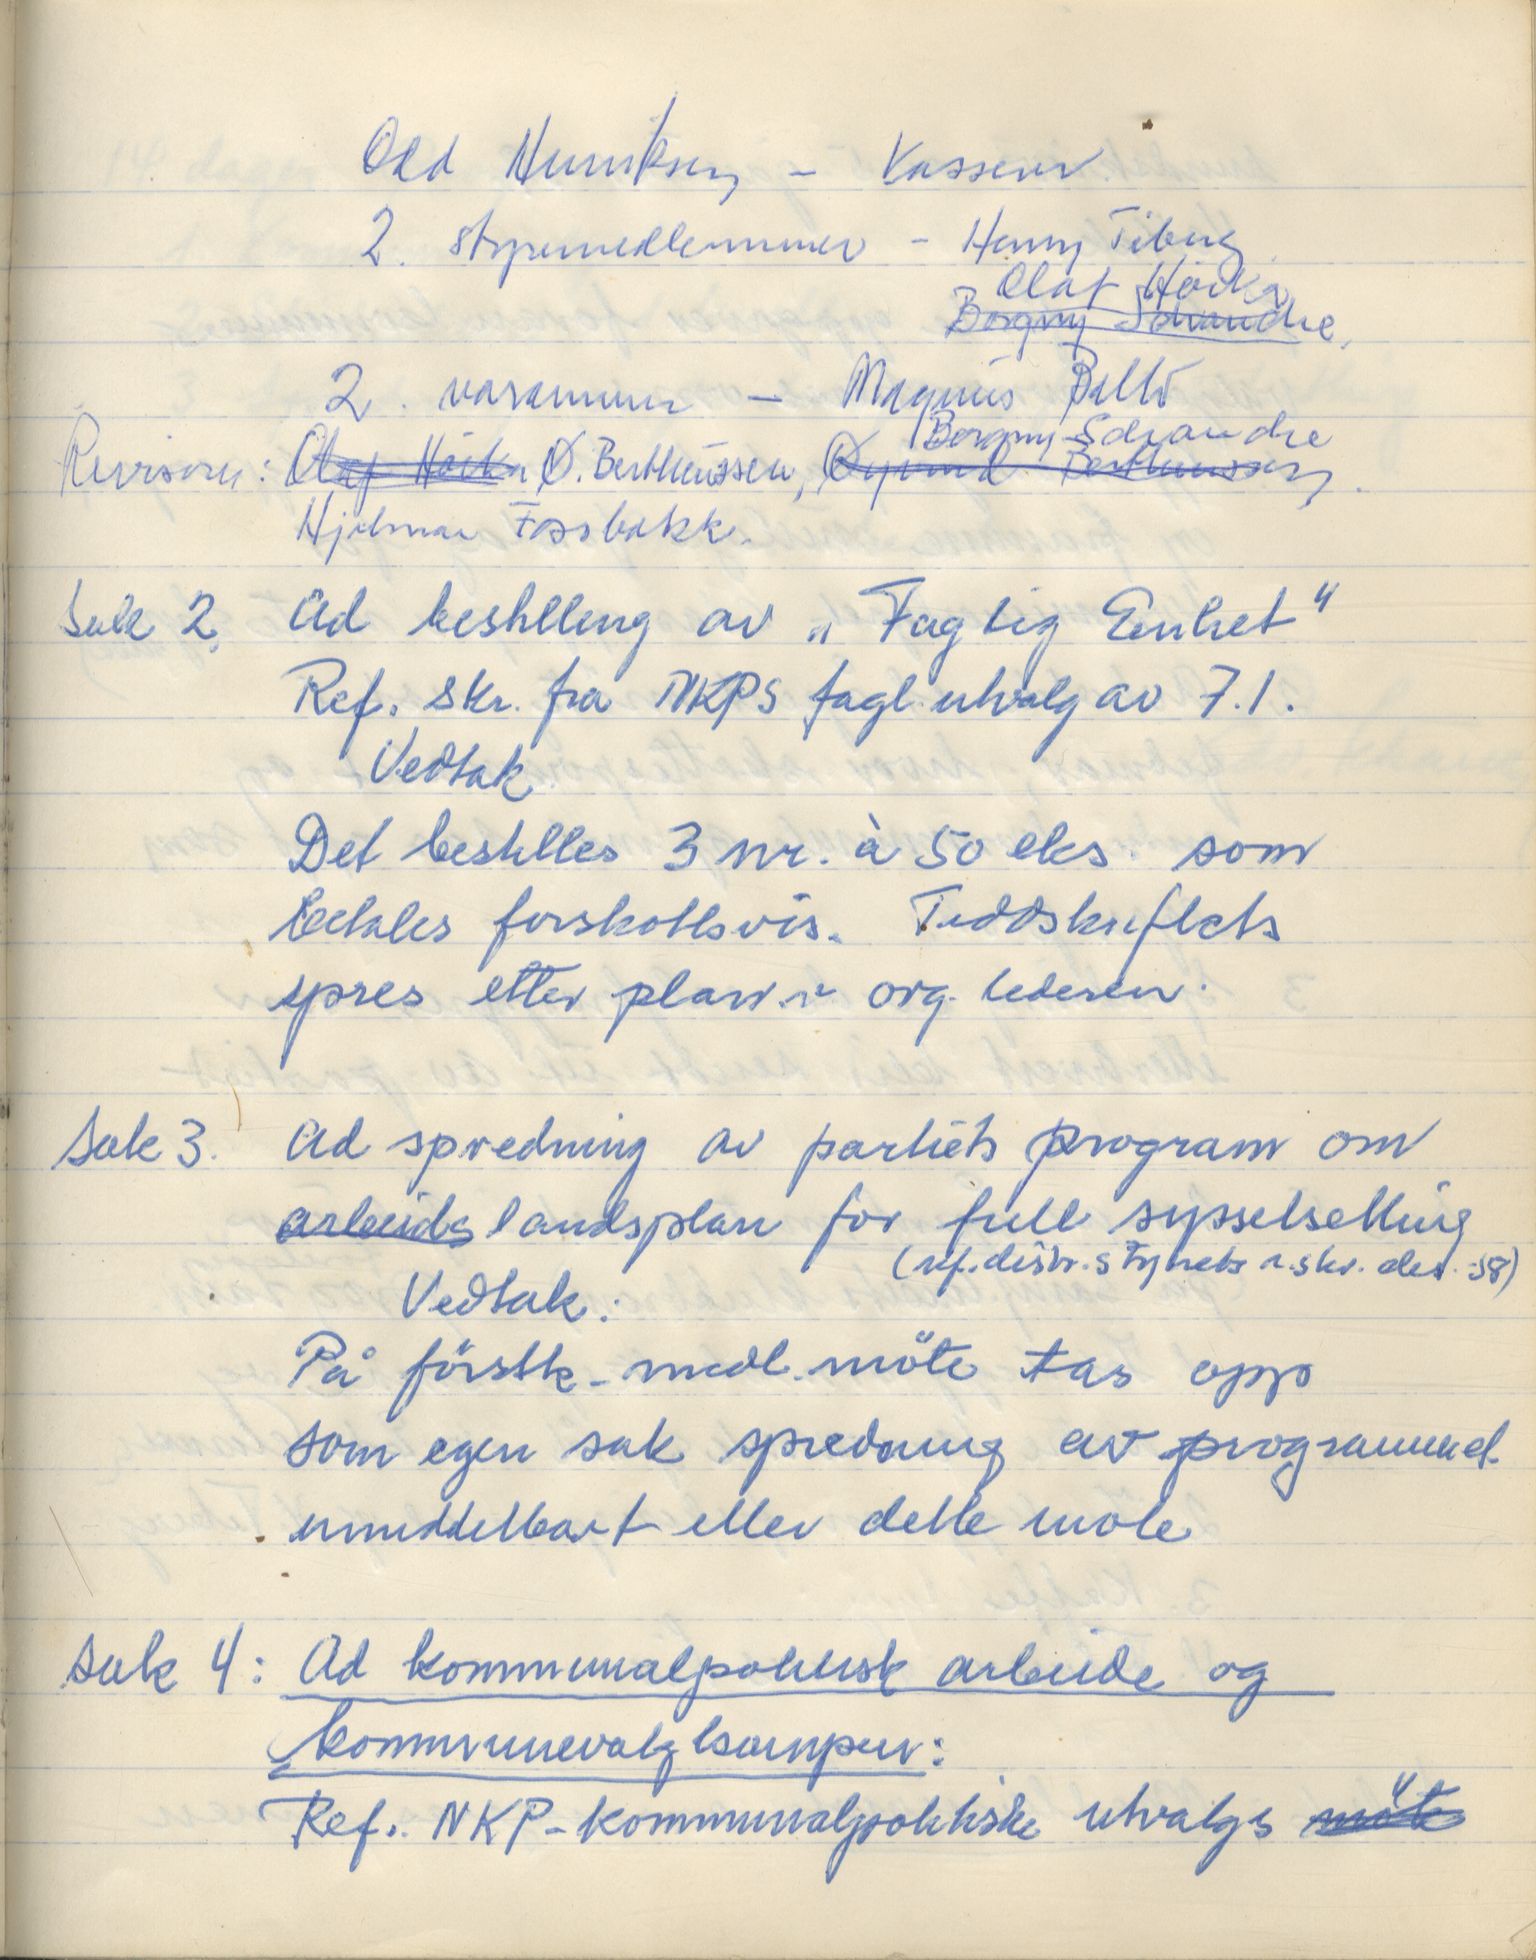 Odd Henriksen - Kasserer
2. styremedlemmer - Henry Tiberg
Olaf Höika
Borgny Schanche,
2. varamenn - Magnus Ballo
Borgny Schanche
Revisorer: Olaf Höika Ø. Bertheussen, Øyvind Bertheussen.
Hjalmar Fossbakk.
Sak 2. Ad bestilling av „Faglig Enhet"
Ref. skr. fra NKPs fagl. utvalg av 7.1.
Vedtak
Det bestilles 3 nr. à 50 eks. som
betales forskottsvis. Tiddskriftets
spres etter plan v org. lederen.
Sak 3. Ad spredning av partiets program om
arbeids landsplan for full sysselsetting
(ref. distr. styrets r.skr. des. -58)
Vedtak:
På förstk. medl. möte tas opp
som egen sak spredning av programmet
umiddelbart etter dette möte
Sak 4: Ad kommunalpolitisk arbeide og
kommunevalgkampen:
Ref. NKP-kommunalpolitiske utvalgs möte